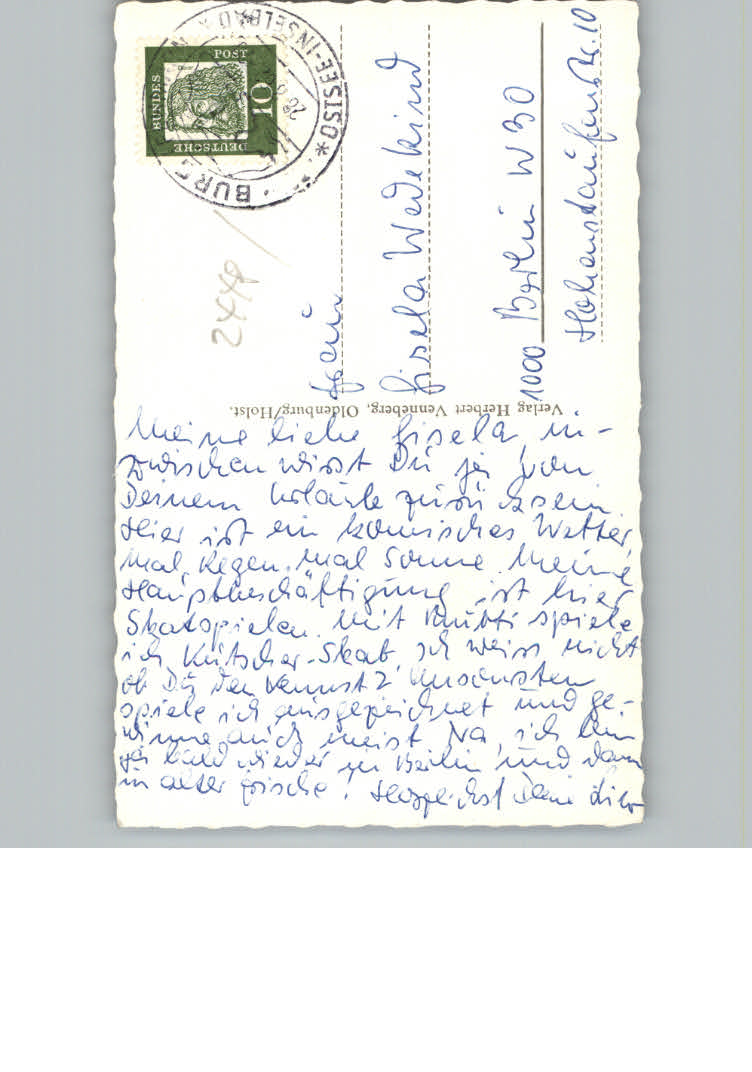 Meine liebe Gisela, in-
zwischen wirst Du ja von
Deinem Urlaub zurück sein.
Hier ist ein komisches Wetter,
mal Regen, mal Sonne. Meine
Hauptbeschäftigung ist hier
Skatspielen. Mit Mutti spiele
ich Kutscher-Skat, ich weiss nicht
ob Du den kennst? Ansonsten
spiele ich ausgezeichnet und ge-
winne auch meist. Na, ich bin
ja bald wieder in Berlin und dann
in alter Frische! Herzlichst Deine
Verlag Herbert Venneberg, Oldenburg/Holst.
Gisela Wedekind
1000 Berlin W 30
Hohenstaufenstr. 10
2448
DEUTSCHE
BUNDES
POST
10
BURG
OSTSEE-INSELBAD